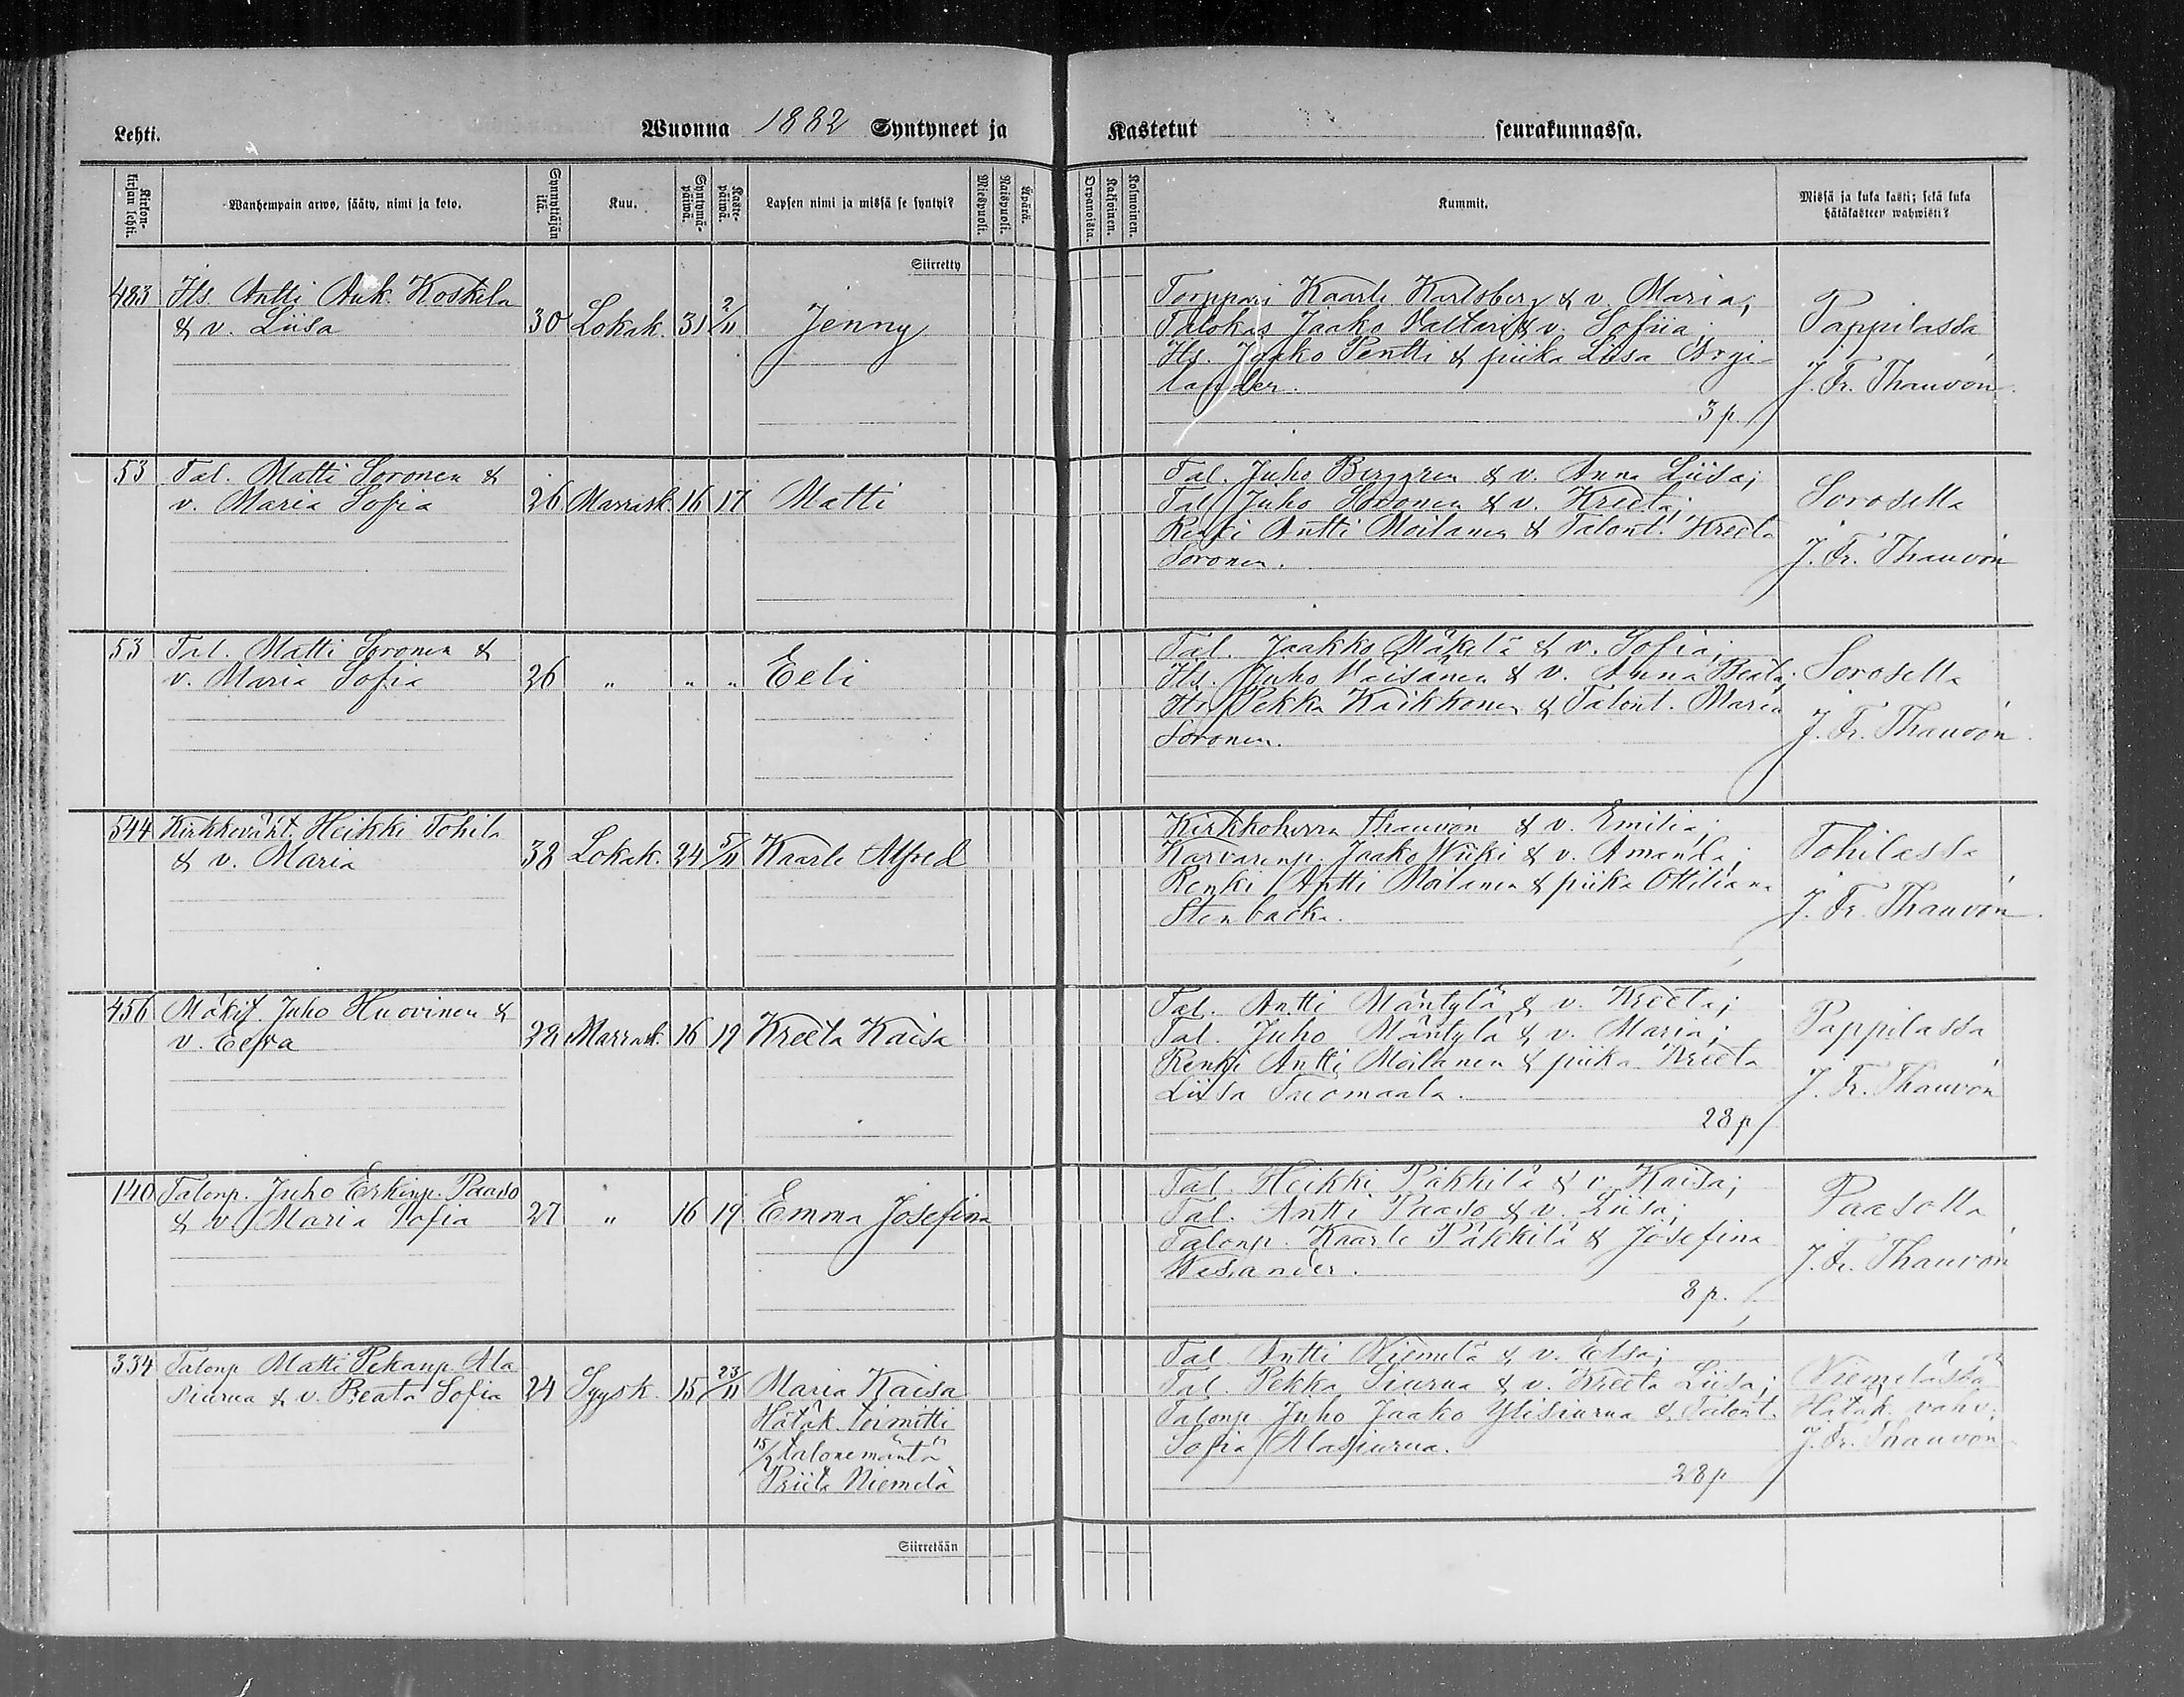 Lehti.
Wuonna 1882 Syntyneet ja
Kastetut seurakunnassa.
Kirkon-kirjan lehti.
Wanhempain arwo, sääty, nimi ja koto.
Synnyttäjän ikä.
Kuu.
Syntymä-päiwä.
Kaste-päiwä.
Lapsen nimi ja missä se syntyi?
Miespuoli.
Waimopuoli.
Äpärä.
Orpanoista.
Kaksoinen.
Kolmoinen.
Kummit.
Missä ja kuka kasti; sekä kuka
hätäkasteen wahwisti?
Siirretty
483 Its. Antti Ank. Koskela
& v. Liisa 30 Lokak. 31 2/11 Jenny
Torppari Kaarle Karlsberg & v. Maria,
Talokas Jaako Valtari & v. Sofiia;
Its. Jaako Pentti & piika Liisa
3 p.
Pappilassa
J. Fr. Thauvón.
53 Tal. Matti Soronen &
v. Maria Sofia 26 Marrask. 16 17 Matti
Tal. Juho Berggren & v. Anna Liisa;
Tal. Juho Soronen & v. Kreeta;
Renki Antti Moilanen & Talont. Kreeta
Soronen.
Sorosella
J. Fr. Thauvón
53 Tal. Matti Soronen &
v. Maria Sofia 26 " " " Eeli
Tal. Jaakko Mäkelä & v. Sofia;
Its. Juho Väisänen & v. Anna Beata;
Its. Pekka Kaikkonen & Talont. Maria
Soronen.
Sorosella
J. Fr. Thauvón.
544 Kirkkoväht. Heikki Tohila
& v. Maria 38 Lokak. 24 5/11 Kaarle Alfred
Kirkkoherra Thauvón & v. Emilia;
Karvarinp. Jaako Wiiki & v. Amanda;
Renki Antti Moilanen & piika Ottiliana
Stenbacka.
Tohilassa
J. Fr. Thauvón.
456 Mäkit. Juho Huovinen &
v. Eeva 28 Marrask. 16 19 Kreeta Kaisa
Tal. Antti Mäntylä & v. Kreeta;
Tal. Juho Mäntylä & v. Maria;
Renki Antti Moilanen & piika Kreeta
Liisa Tuomaala.
28 p
Pappilassa
J. Fr. Thauvón
140 Talonp. Juho Erkinp. Paaso
& v. Maria Sofia 27 " 16 19 Emma Josefina
Tal. Heikki Päkkilä & v. Kaisa;
Tal. Antti Paaso & v. Liisa;
Talonp. Kaarle Päkkilä & Josefina
Wesander.
8 p.
Paasolla
J. Fr. Thauvón
334 Talonp. Matti Pekanp. Ala
Siurua & v. Beata Sofia 24 Syysk. 15 23/11 Maria Kaisa
Hätäk. toimitti
15/9 talonemäntä
Priita Niemelä
Tal. Antti Niemelä & v. Elsa;
Tal. Pekka Siurua & v. Kreeta Liisa;
Talonp. Juho Jaako Ylisiurua & Talont.
Sofia Alasiurua.
28 p
Niemelässä
Hätäk. vahv.
J. Fr. Thauvón
Siirretään